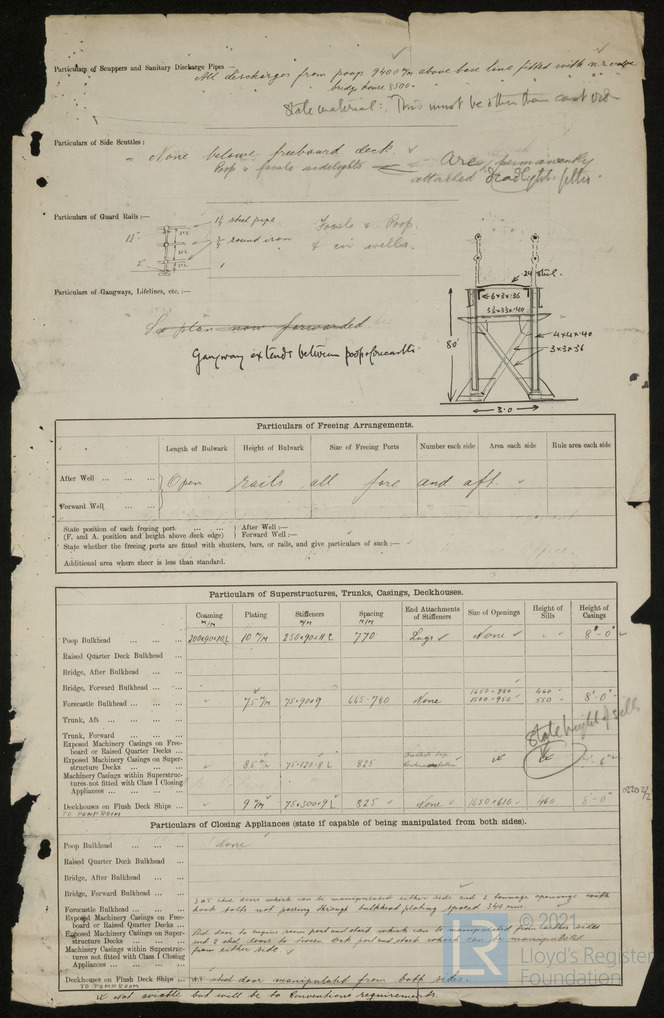 Particulars of Scuppers and Sanitary Discharge Pipes —
All discharges from poop 9400 m/m above base line fitted with n.r. valve
bridge house 8500
State material: This must be other than cast iron
Particulars of Side Scuttles :
None below freeboard deck
Poop & focsle sidelights Are permanently
attached deadlights fitted.
Particulars of Guard Rails :—
steel pipe
round iron
Focsle & Poop.
Particulars of Gangways, Lifelines, etc. :—
.24 steel.
6×3×.36
4×4×.40
3×3×.36
80
3.0
See plan now forwarded
Gangway extends between poop & forecastle
Particulars of Freeing Arrangements.
Length of Bulwark Height of Bulwark Size of Freeing Ports Number each side Area each side Rule area each side
After Well ... ... ...
Open rails all fore and aft.
Forward Well ... ...
State position of each freeing port ... ... ... After Well :—
(F. and A. position and height above deck edge) Forward Well :—
State whether the freeing ports are fitted with shutters, bars, or rails, and give particulars of such :—
Additional area where sheer is less than standard.
Particulars of Superstructures, Trunks, Casings, Deckhouses.
Coaming Plating Stiffeners Spacing End Attachments of Stiffeners Size of Openings Height of Sills Height of Casings
m/m m/m m/m
Poop Bulkhead ... ... ... 10 m/m 770 Lugs None 8'-0"
Raised Quarter Deck Bulkhead ...
Bridge, After Bulkhead ... ...
Bridge, Forward Bulkhead ... ... 1650 × 780 460
Forecastle Bulkhead ... ... 7.5 m/m 75×90×9 665-780 None 1500 × 950 550 8'-0"
Trunk, Aft ... ... ...
State height of sills
Trunk, Forward ... ...
Exposed Machinery Casings on Free-
board or Raised Quarter Decks ...
Exposed Machinery Casings on Super-
structure Decks ... ... ... 8.5 m/m 825
Machinery Casings within Superstruc-
tures not fitted with Class I Closing
Appliances ... ... ...
Deckhouses on Flush Deck Ships ... 9 m/m 825 None 1650 × 610 460 8'-0"
TO PUMP ROOM
Particulars of Closing Appliances (state if capable of being manipulated from both sides).
Poop Bulkhead ... ... ... None
Raised Quarter Deck Bulkhead ...
Bridge, After Bulkhead ... ...
Bridge, Forward Bulkhead ... ...
doors which can be manipulated either side and 2 tonnage openings with
Forecastle Bulkhead ... ... hook bolts not passing through bulkhead plating spaced 340 m/m.
Exposed Machinery Casings on Free-
board or Raised Quarter Decks ...
Exposed Machinery Casings on Super-
structure Decks ... ... ...
door to engine room port and starb which can be manipulated from either sides
and 2 steel doors to port and starb which can be manipulated
from either side
Machinery Casings within Superstruc-
tures not fitted with Class I Closing
Appliances ... ... ...
Deckhouses on Flush Deck Ships ... steel door manipulated from both sides.
TO PUMP ROOM
Not available but will be to Convention requirements.
LR
© 2021
Lloyd's Register
Foundation